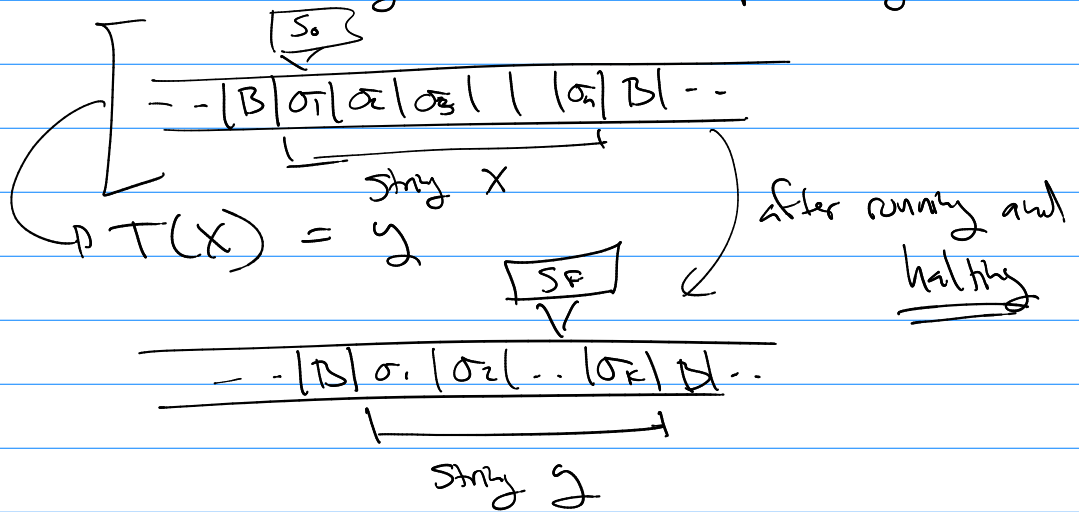 S₀
- - |B|σ₁|σ₂|σ₃| | |σₙ|B| - -
string x
T(x) = y
after running and
halting
S_F
- - |B|σ₁|σ₂|..|σ_k|B|..
string y